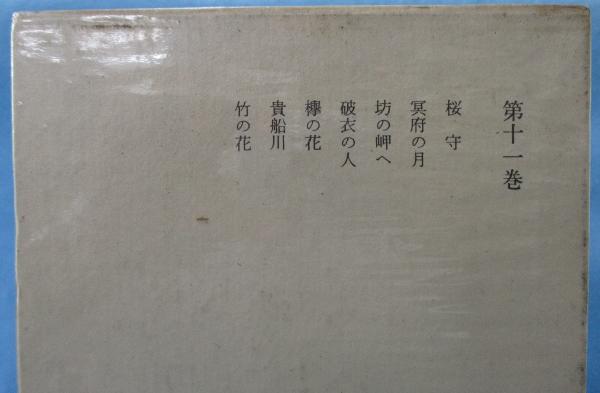 第十一巻
桜守
冥府の月
坊の岬へ
破衣の人
欅の花
貴船川
竹の花